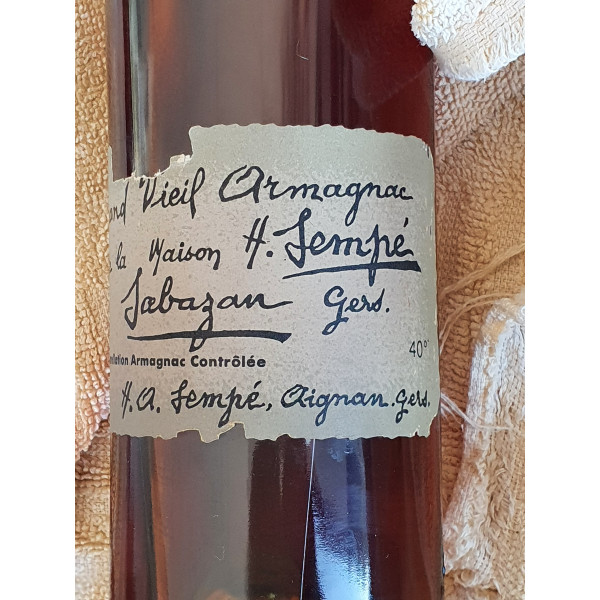 and Vieil Armagnac
la Maison H. Sempé
Sabazan Gers.
llation Armagnac Contrôlée
40°
H.A. Sempé, Aignan. Gers.